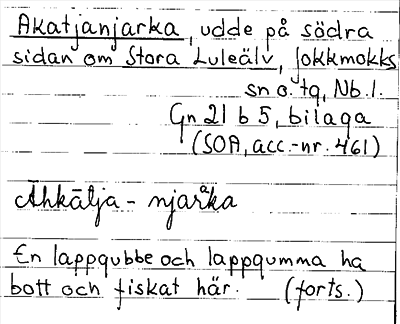 Akatjanjarka, udde på södra
sidan om Stora Luleälv, Jokkmokks
sn o. tg, Nb. l.
Gn 21 b 5, bilaga
(SOA, acc.-nr. 461)
Ahkātja - njarka
En lappgubbe och lappgumma ha
bott och fiskat här. (forts.)